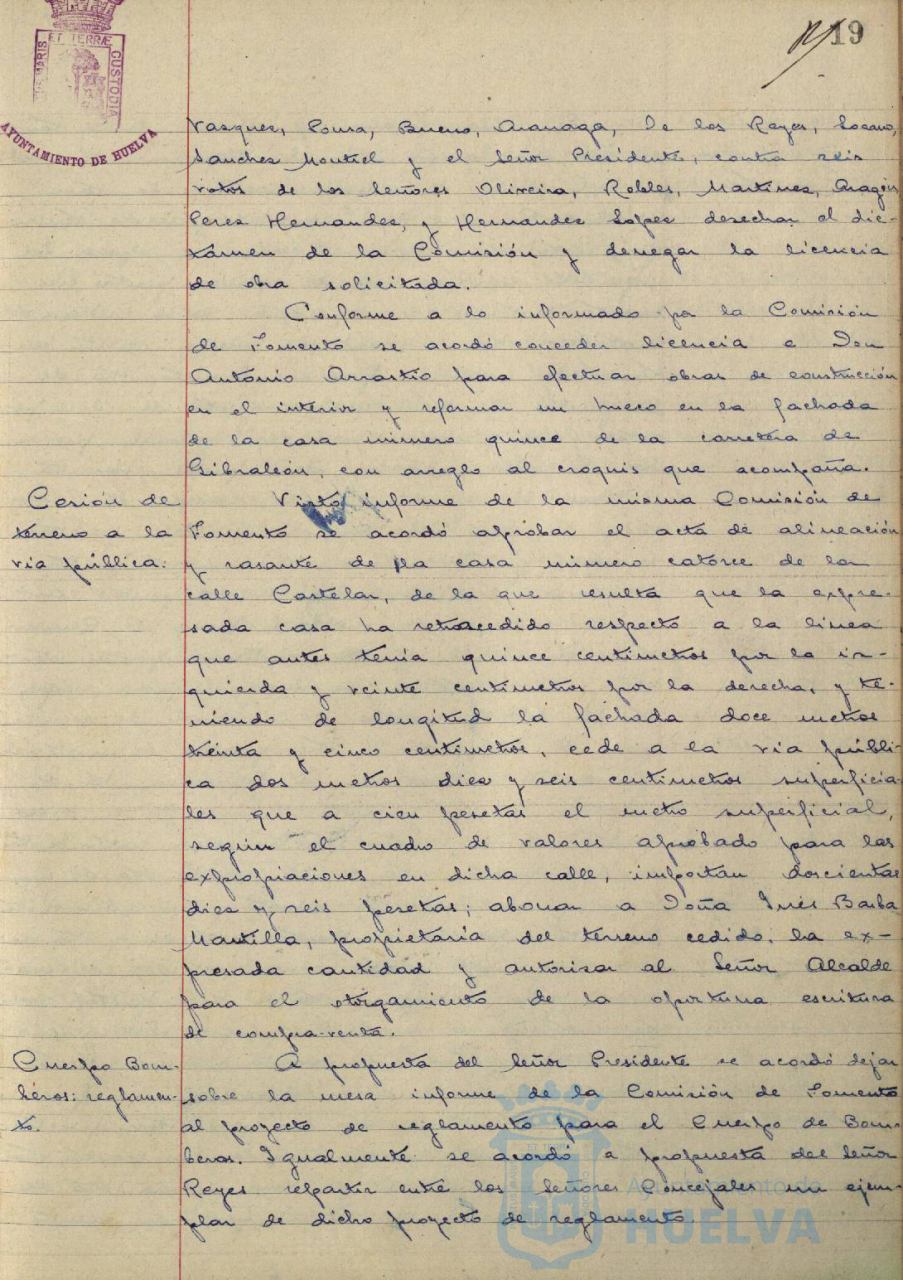 19
ET TERRÆ
MARIS
CUSTODIA
AYUNTAMIENTO DE HUELVA
Vazquez, Sousa, Bueno, Aranaga, De los Reyes, Socano,
Sanchez Montiel y el Señor Presidente, contra seis
votos de los Señores Oliveira, Robles, Martinez, Aragón,
Perez Hernandez, y Hernandez Lopez desechar el dic-
támen de la Comisión y denegar la licencia
de obra solicitada.
Conforme a lo informado por la Comisión
de Fomento se acordó conceder licencia a Don
Antonio Arrastio para efectuar obras de construcción
en el interior y reformar un hueco en la fachada
de la casa número quince de la carretera de
Gibraleón, con arreglo al croquis que acompaña.
Cesión de
terreno a la
via pública.
Visto informe de la misma Comisión de
Fomento se acordó aprobar el acta de alineación
y rasante de la casa número catorce de la
calle Castelar, de la que resulta que la expre-
sada casa ha retrocedido respecto a la linea
que antes tenia quince centimetros por la iz-
quierda y veinte centimetros por la derecha, y te-
niendo de longitud la fachada doce metros
treinta y cinco centimetros, cede a la via públi-
ca dos metros diez y seis centimetros superficia-
les que a cien pesetas el metro superficial,
según el cuadro de valores aprobado para las
expropiaciones en dicha calle, importan doscientas
diez y seis pesetas; abonar a Doña Inés Barba
Mantilla, propietaria del terreno cedido, la ex-
presada cantidad y autorizar al Señor Alcalde
para el otorgamiento de la oportuna escritura
de compra-venta.
Cuerpo Bom-
béros: reglamen-
to.
A propuesta del Señor Presidente se acordó dejar
sobre la mesa informe de la Comisión de Fomento
al proyecto de reglamento para el Cuerpo de Bom-
beros. Igualmente se acordó a propuesta del Señor
Reyes repartir entre los Señores Concejales un ejem-
plar de dicho proyecto de reglamento.
Ayuntamiento de
HUELVA